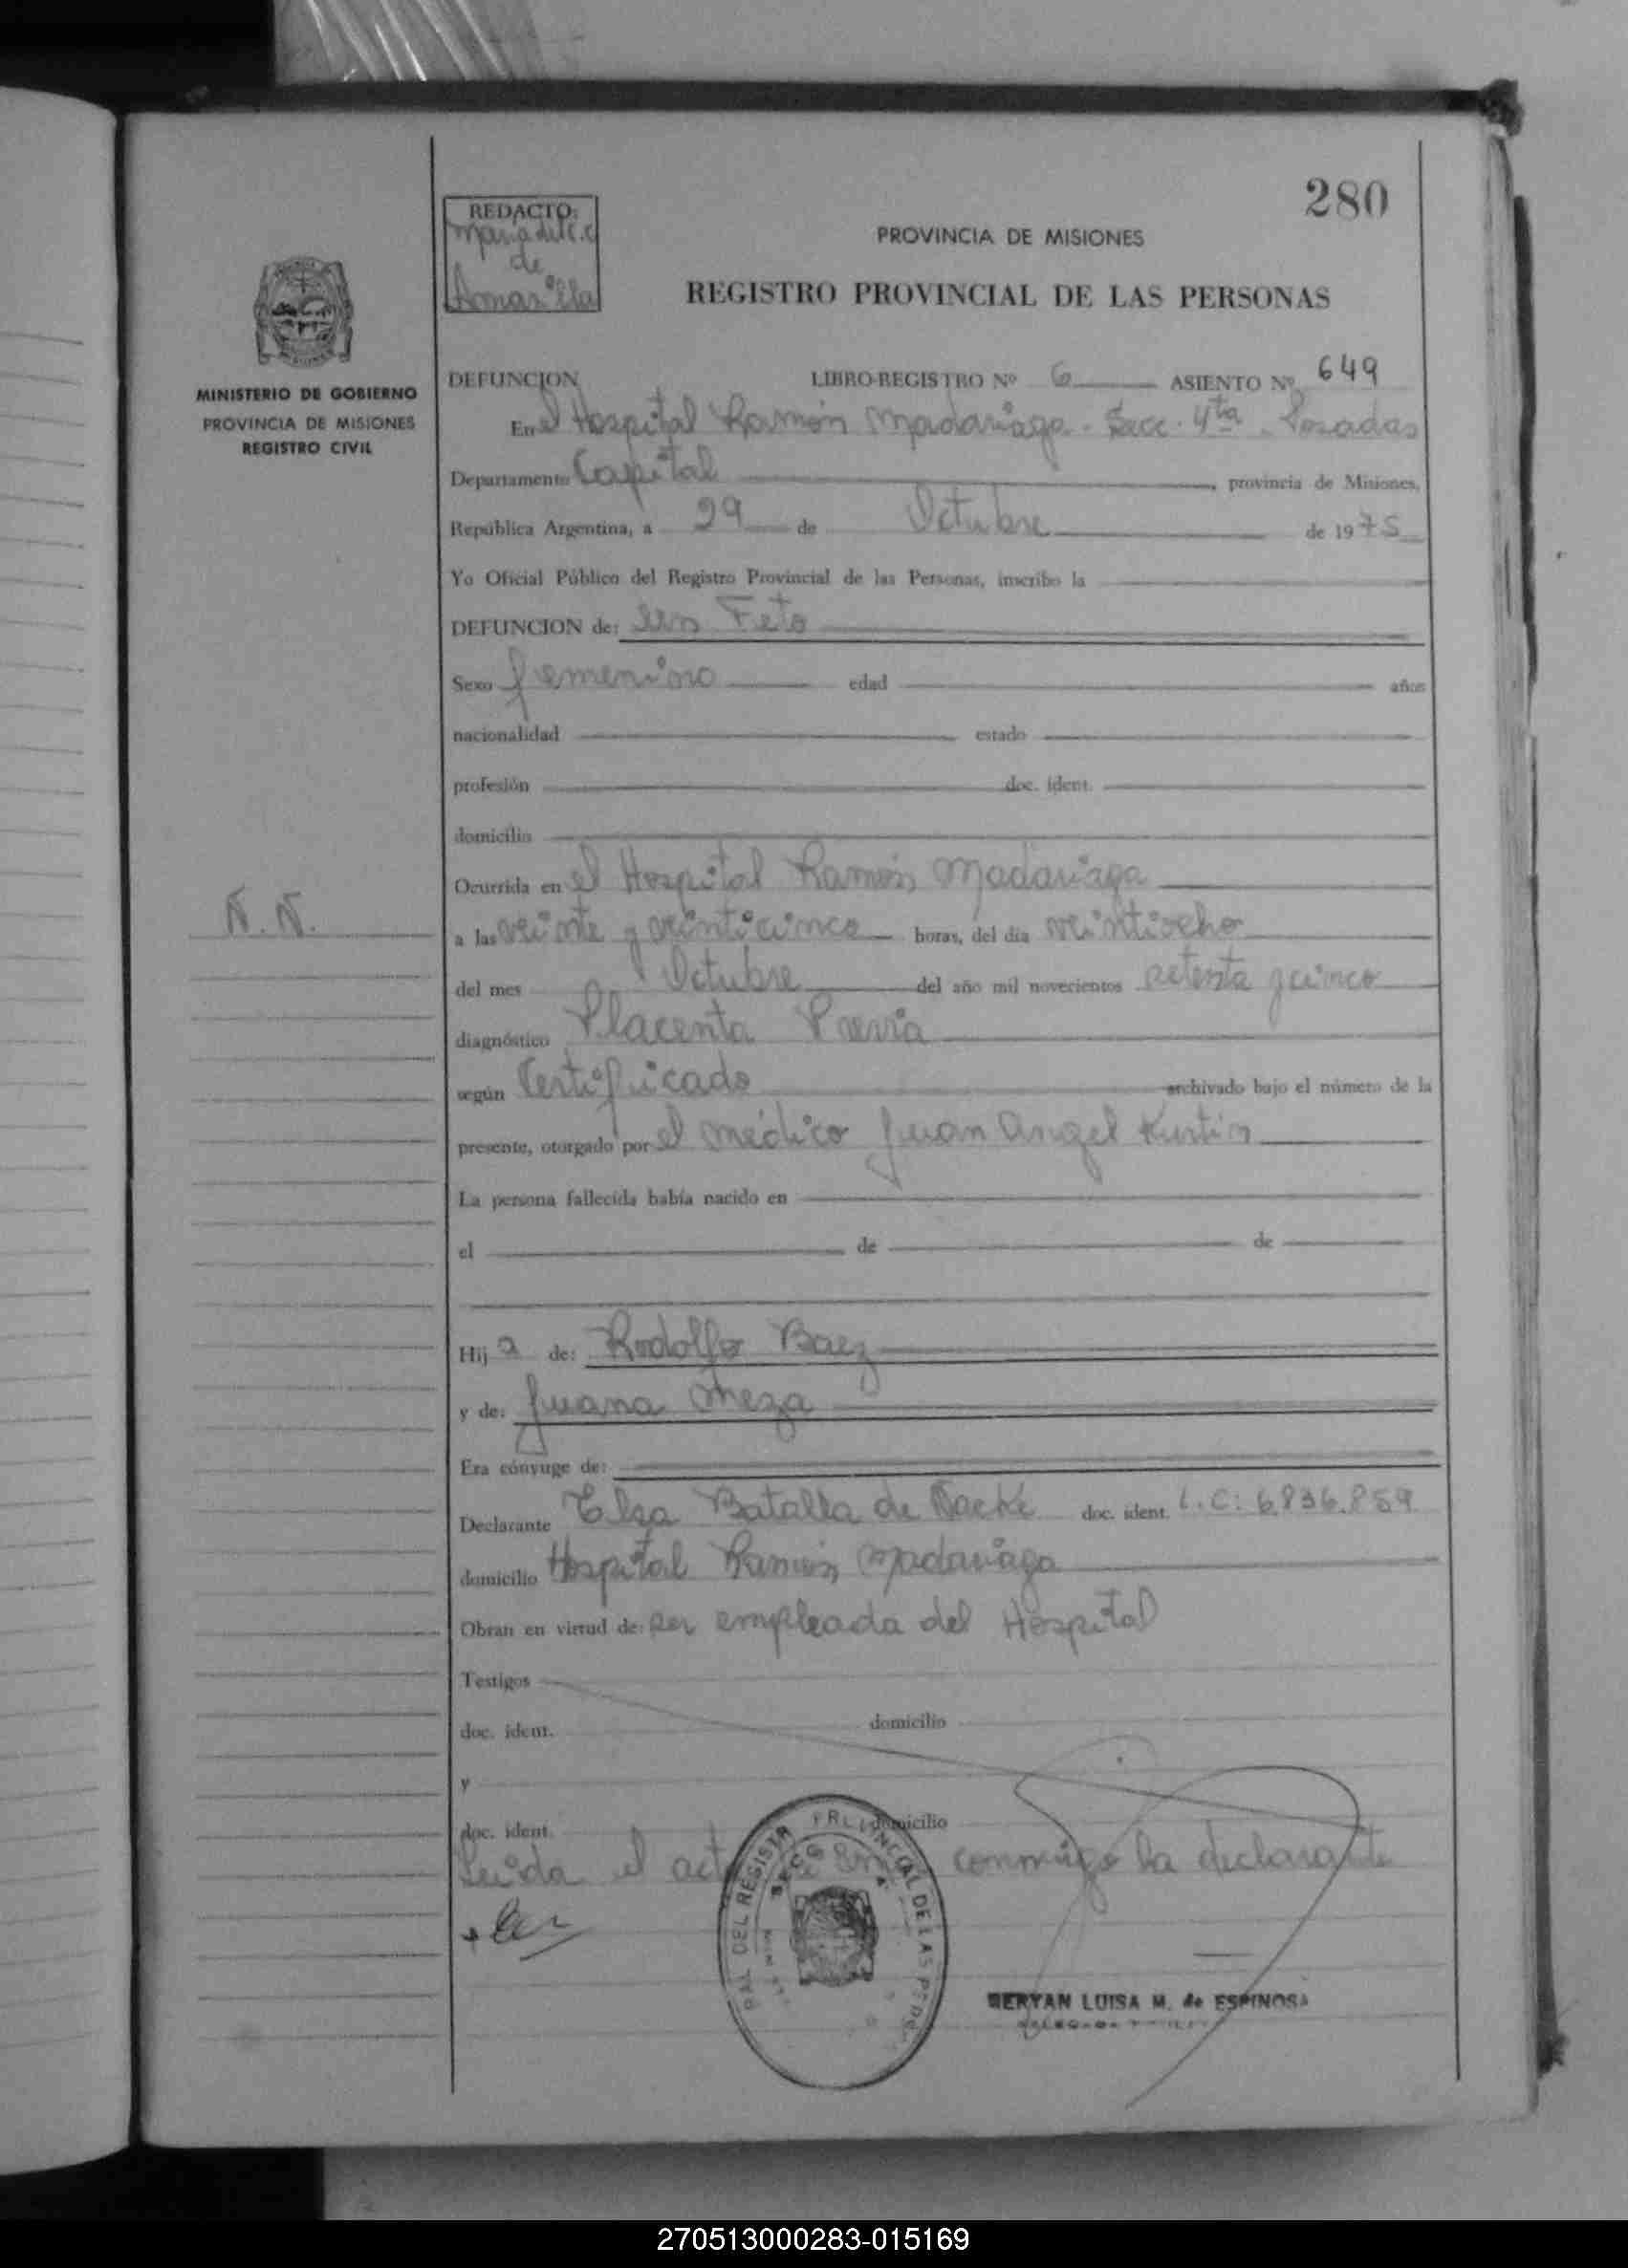 280
REDACTO:
Maria del C. C.
de
Amarilla
PROVINCIA DE MISIONES
REGISTRO PROVINCIAL DE LAS PERSONAS
MINISTERIO DE GOBIERNO
PROVINCIA DE MISIONES
REGISTRO CIVIL
DEFUNCION LIBRO-REGISTRO Nº 6 ASIENTO Nº 649
En el Hospital Ramón Madariaga - Secc. 4ta - Posadas
Departamento Capital, provincia de Misiones,
República Argentina, a 29 de Octubre de 1975
Yo Oficial Público del Registro Provincial de las Personas, inscribo la
DEFUNCION de: un Feto
Sexo femenino edad años
nacionalidad estado
profesión doc. ident.
domicilio
Ocurrida en el Hospital Ramón Madariaga
N. N.
a las veinte y veinticinco horas, del día veintiocho
del mes Octubre del año mil novecientos setenta y cinco
diagnóstico Placenta Previa
según Certificado archivado bajo el número de la
presente, otorgado por el médico Juan Angel Kurtin
La persona fallecida había nacido en
el de de
Hij a de: Rodolfo Baez
y de: Juana Meza
Era cónyuge de:
Declarante Elsa Batalla de doc. ident. L.C: 6.836.859
domicilio Hospital Ramón Madariaga
Obran en virtud de: ser empleada del Hospital
Testigos
doc. ident. domicilio
y
doc. ident. domicilio
Leida el acta conmigo la declarante
DEL REGISTR PROVINCIAL DE LAS
SECC
LUISA M. de ESPINOSA
270513000283-015169